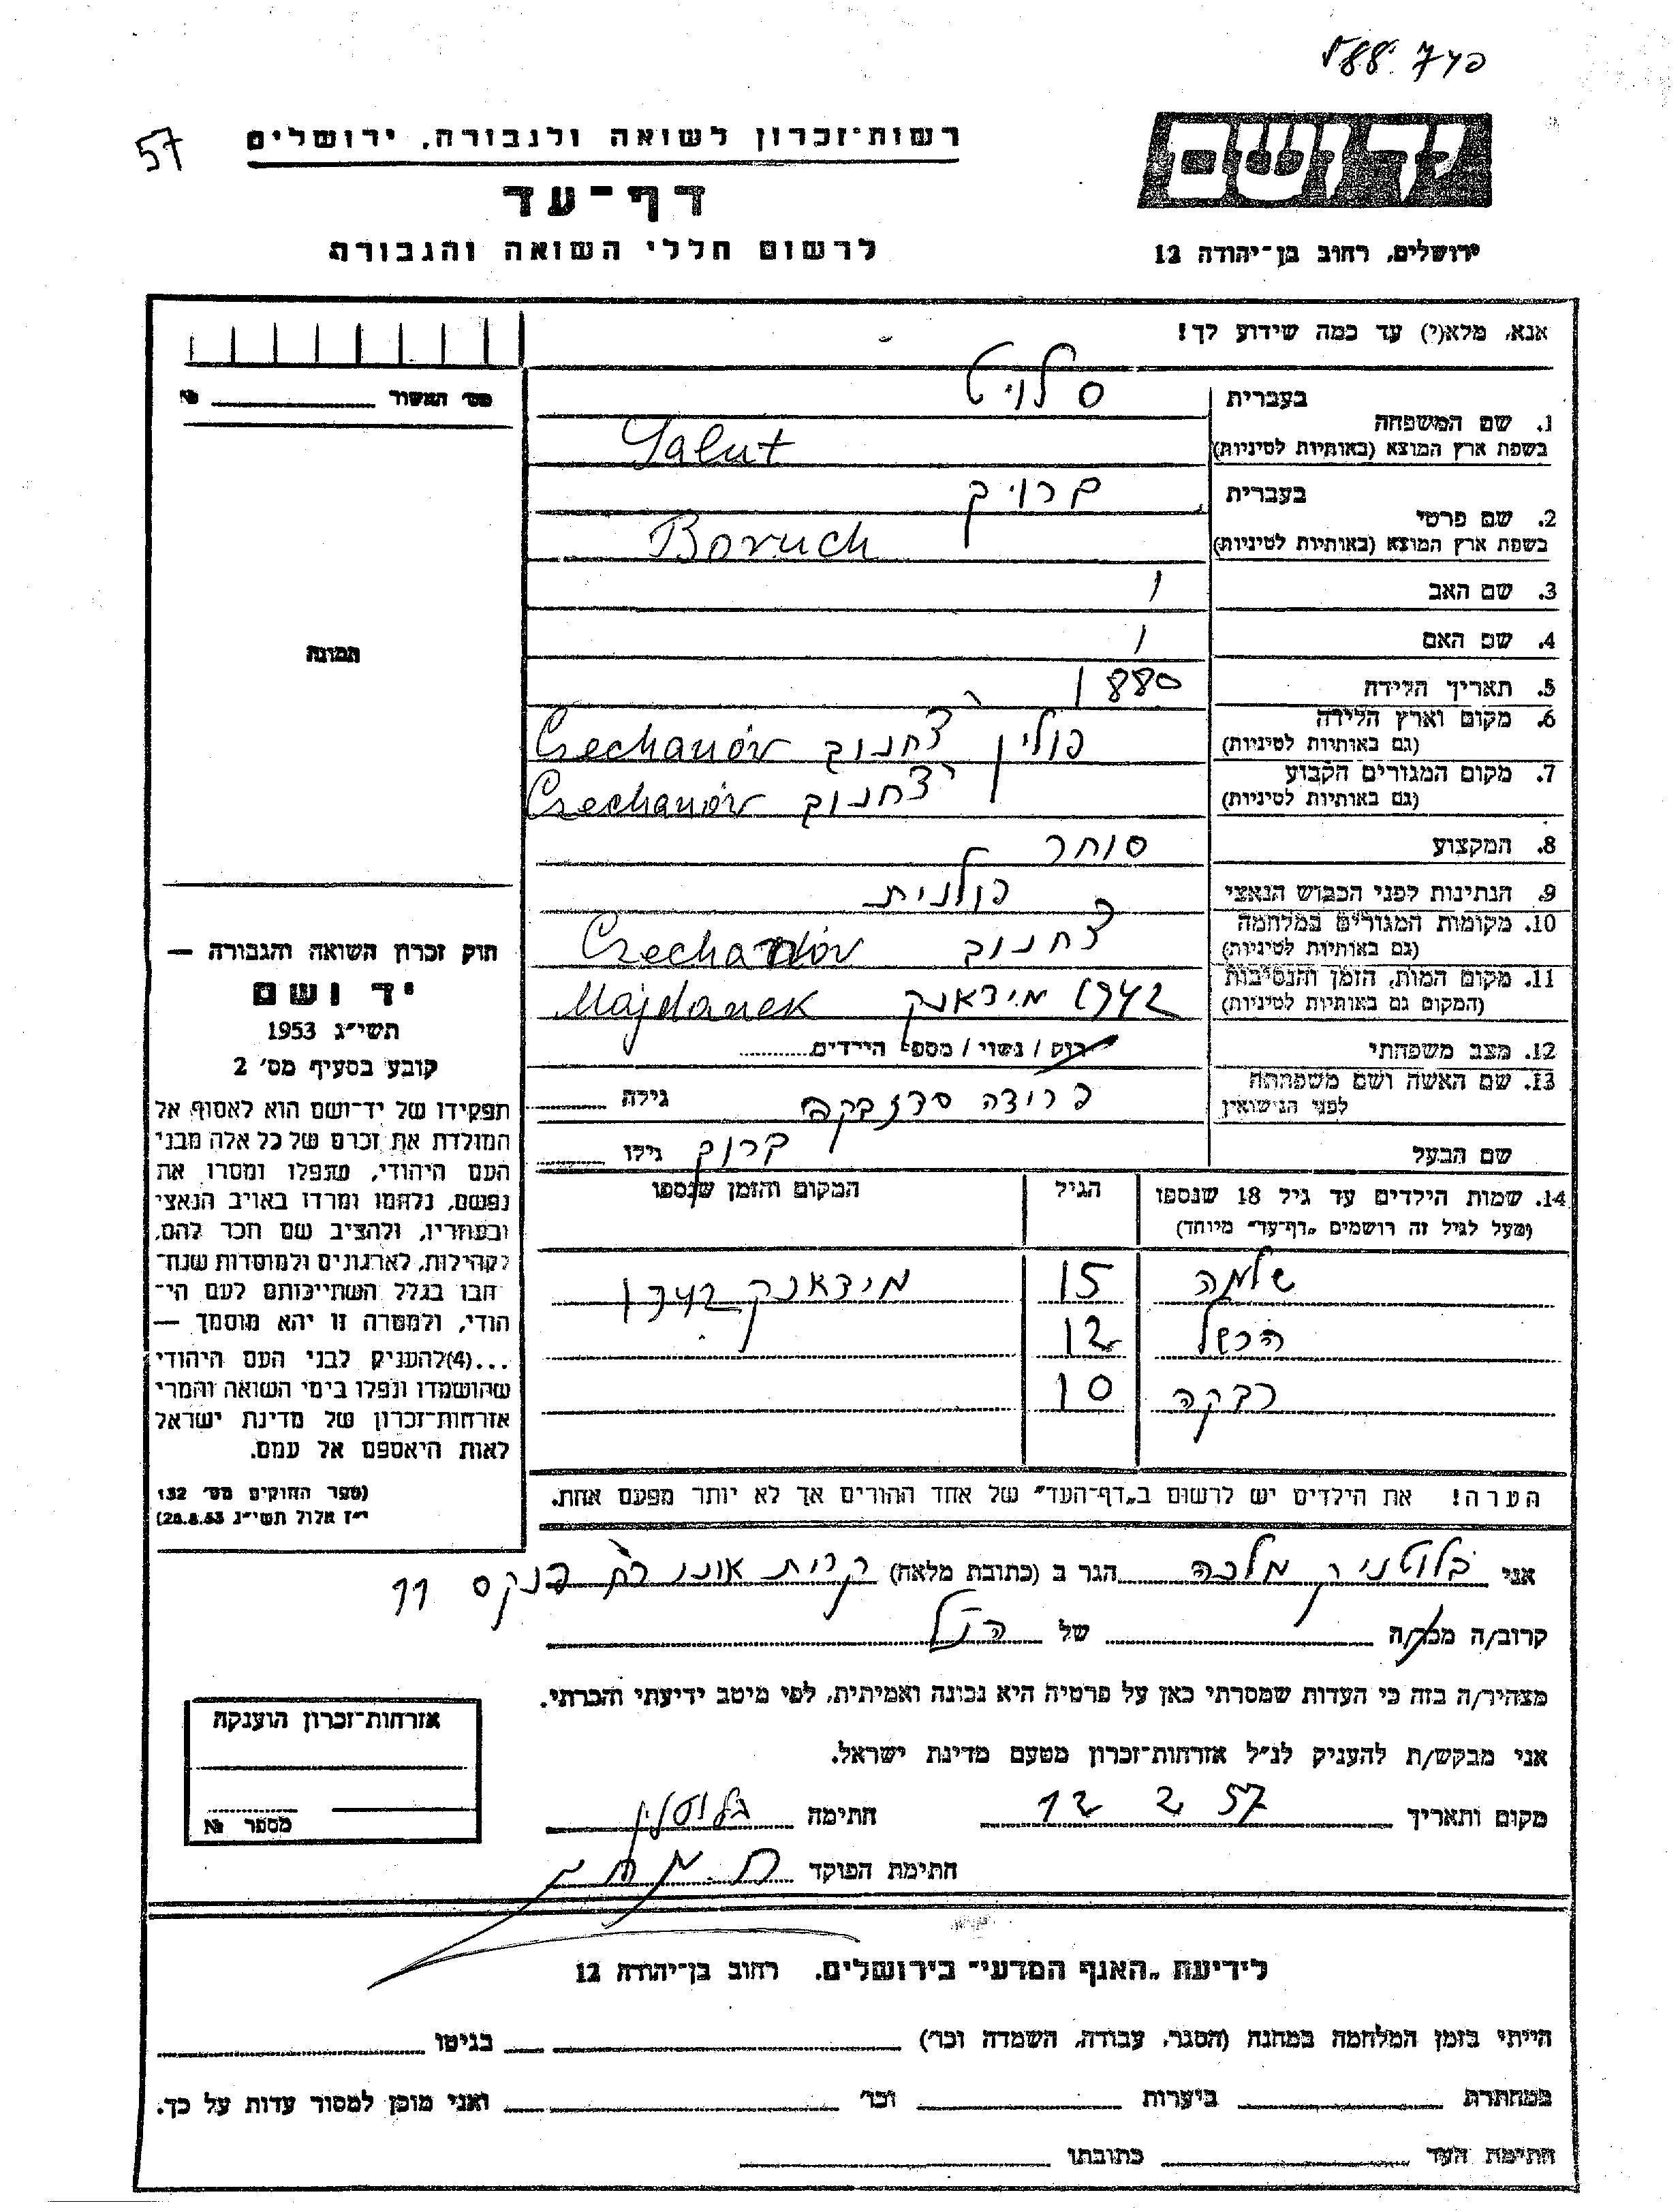 588.7
57
רשות-זכרון לשואה ולגבורה, ירושלים
יד ושם
דף-עד
לרשום חללי השואה והגבורה
ירושלים, רחוב בן-יהודה 12
אנא, מלא(י) עד כמה שידוע לך!
מס' האשור №
1. שם המשפחה בעברית סלוט
בשפת ארץ המוצא (באותיות לטיניות) Salut
2. שם פרטי בעברית ברוך
בשפת ארץ המוצא (באותיות לטיניות) Boruch
3. שם האב
4. שם האם
5. תאריך הלידה 1880
6. מקום וארץ הלידה (גם באותיות לטיניות) פולין צחנוב Czechanów
7. מקום המגורים הקבוע (גם באותיות לטיניות) צחנוב Czechanów
8. המקצוע סוחר
9. הנתינות לפני הכבוש הנאצי פולנית
10. מקומות המגורים במלחמה (גם באותיות לטיניות) צחנוב Czechanów
11. מקום המות, הזמן והנסיבות (המקום גם באותיות לטיניות) 1942 מידאנק Majdanek
12. מצב משפחתי רוק / נשוי / מספר הילדים
13. שם האשה ושם משפחתה לפני הנישואין פריצה גילה
שם הבעל ברוך גילו
תמונה
חוק זכרון השואה והגבורה —
יד ושם
תשי״ג 1953
קובע בסעיף מס׳ 2
תפקידו של יד-ושם הוא לאסוף אל
המולדת את זכרם של כל אלה מבני
העם היהודי, שנפלו ומסרו את
נפשם, נלחמו ומרדו באויב הנאצי
ובעוזריו, ולהציב שם וזכר להם,
לקהילות, לארגונים ולמוסדות שנח-
רבו בגלל השתייכותם לעם הי-
הודי, ולמטרה זו יהא מוסמך —
...(4)להעניק לבני העם היהודי
שהושמדו ונפלו בימי השואה והמרי
אזרחות-זכרון של מדינת ישראל
לאות היאספם אל עמם.
(ספר החוקים מס׳ 132
י״ז אלול תשי״ג 28.8.53)
14. שמות הילדים עד גיל 18 שנספו הגיל המקום והזמן שנספו
(מעל לגיל זה רושמים „דף-עד״ מיוחד)
שלמה 15 מידאנק 1942
הרשל 12
רבקה 10
הערה! את הילדים יש לרשום ב„דף-העד״ של אחד ההורים אך לא יותר מפעם אחת.
אני בלוטניק מלכה הגר ב (כתובת מלאה) קרית אונו רח פנקס 11
קרוב/ה מכר/ה של הנ״ל
מצהיר/ה בזה כי העדות שמסרתי כאן על פרטיה היא נכונה ואמיתית, לפי מיטב ידיעתי והכרתי.
אני מבקש/ת להעניק לנ״ל אזרחות-זכרון מטעם מדינת ישראל.
מקום ותאריך 12 2 57 חתימה
חתימת הפוקד
אזרחות-זכרון הוענקה
מספר №
לידיעת „האגף המדעי״ בירושלים. רחוב בן-יהודה 12
הייתי בזמן המלחמה במחנה (הסגר, עבודה, השמדה וכו׳) בגיטו
במחתרת ביערות וכו׳ ואני מוכן למסור עדות על כך.
חתימת העד כתובתו